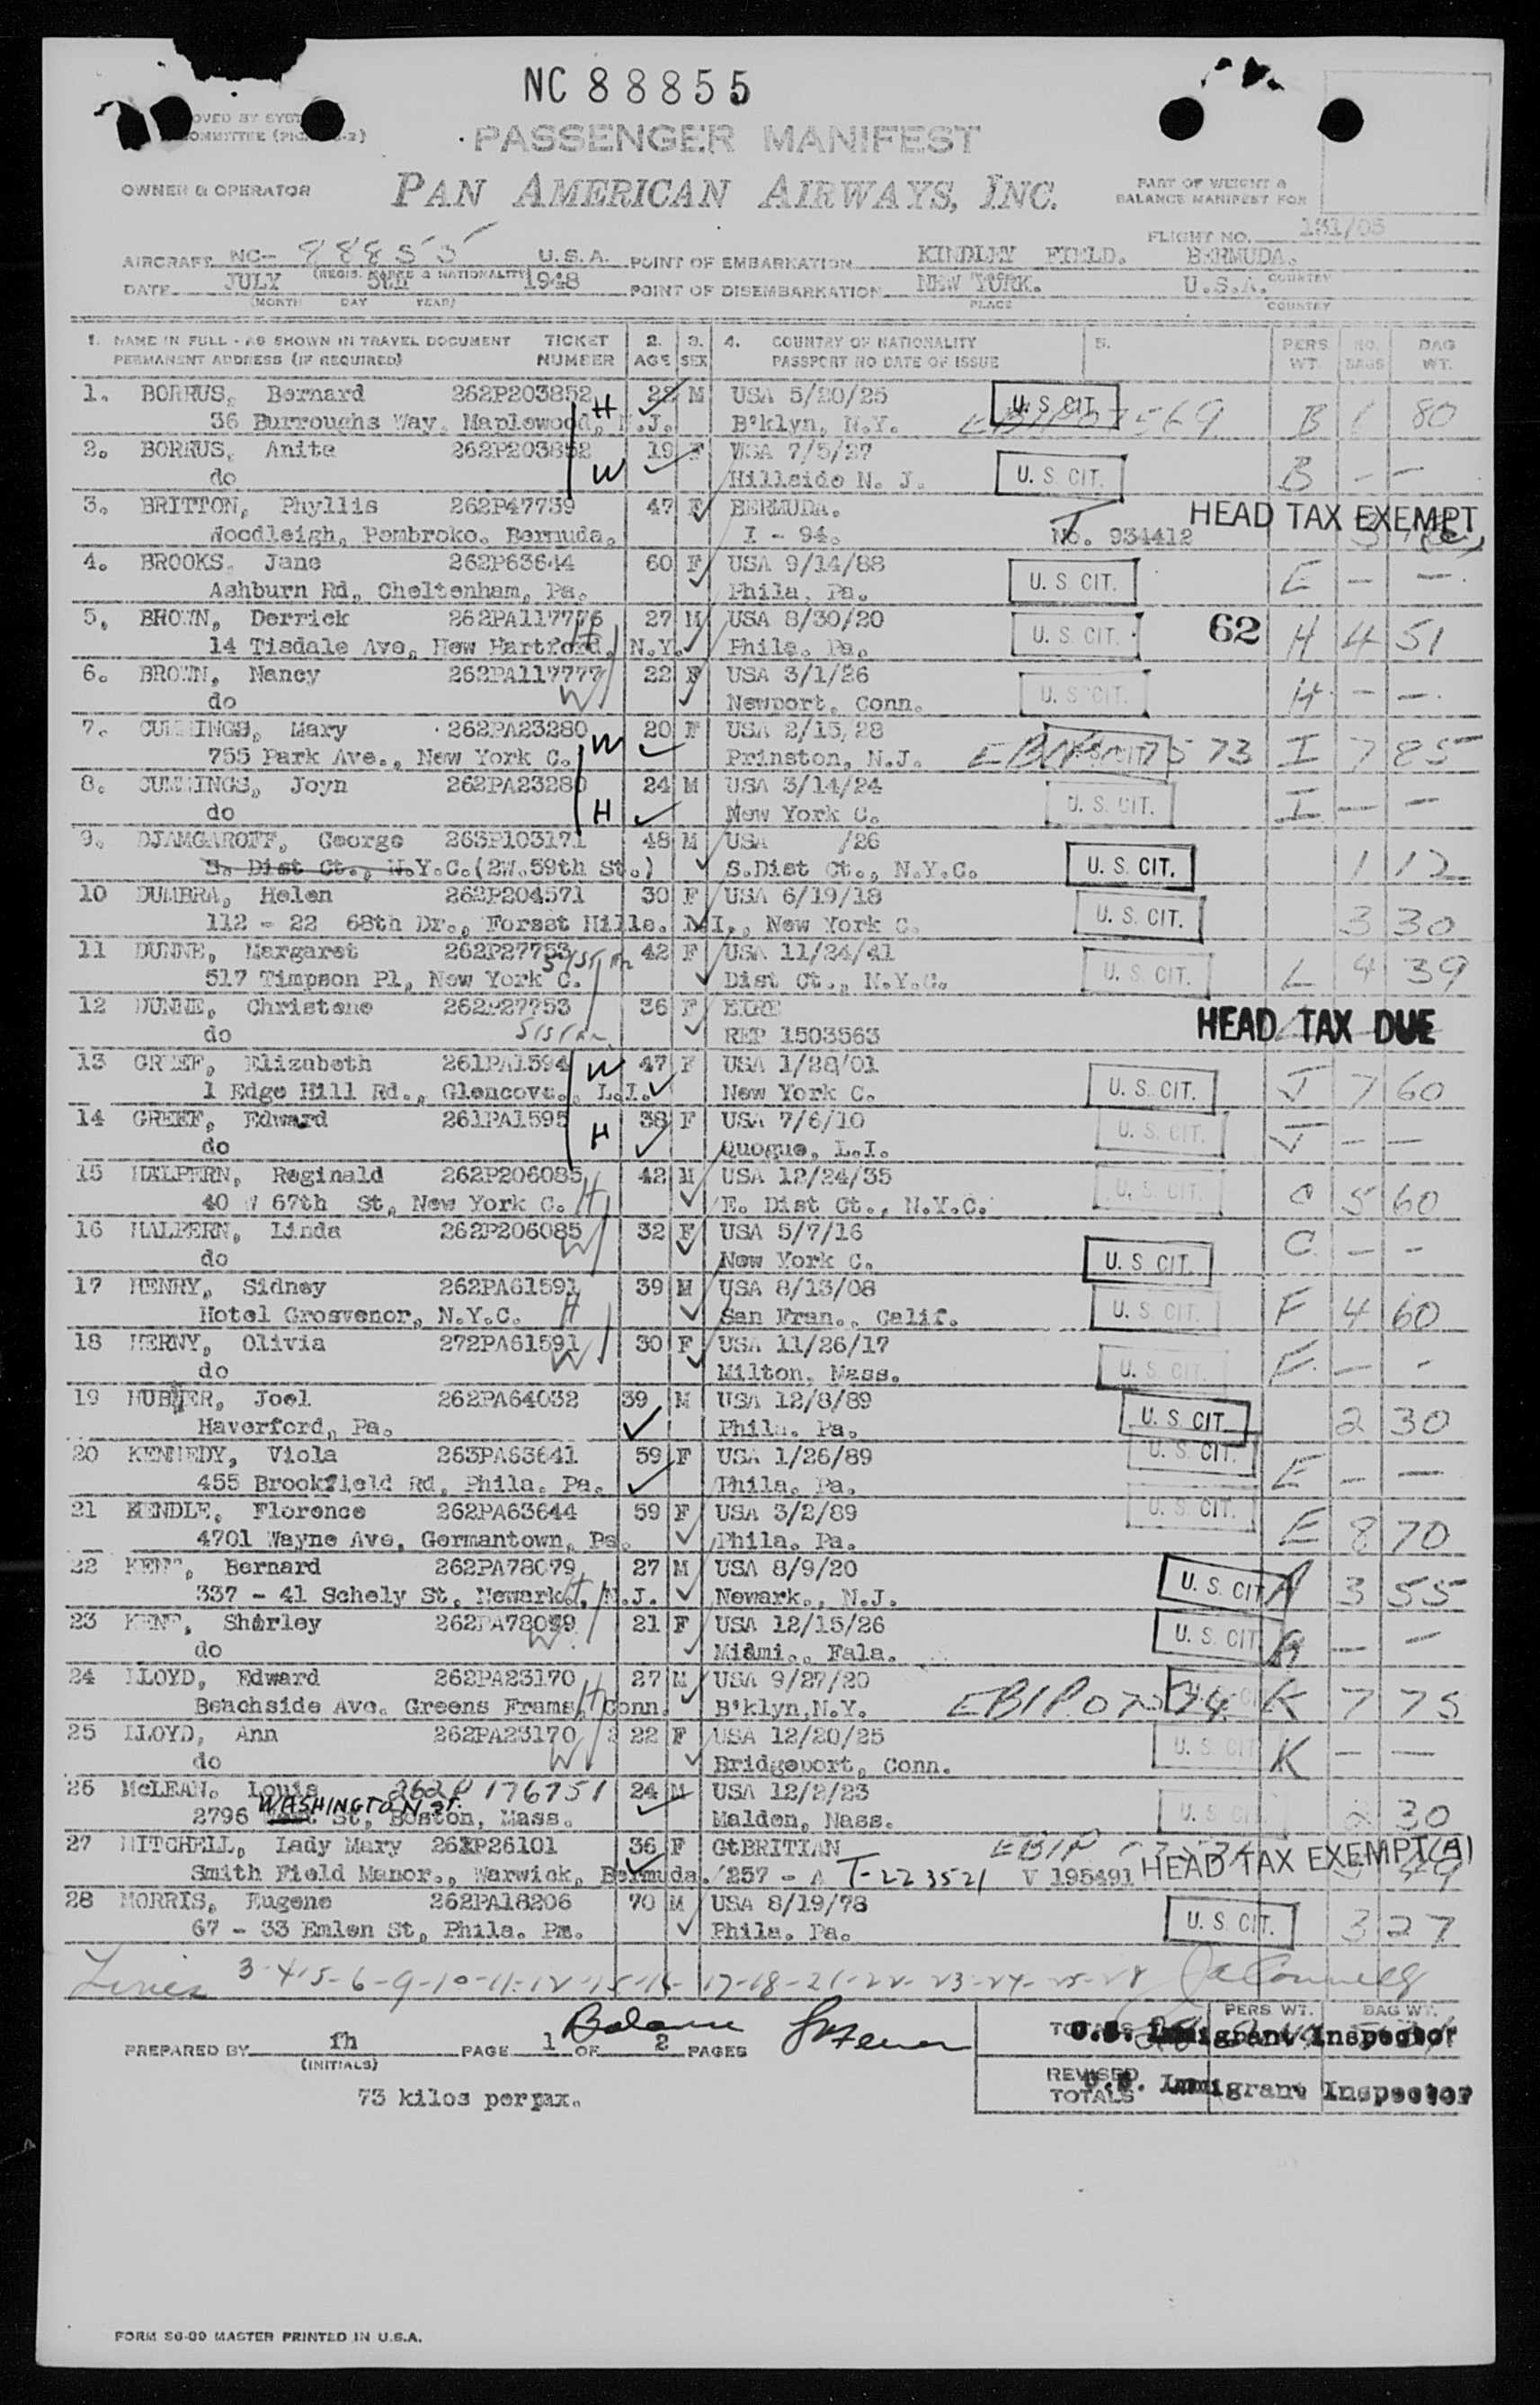 NC 88855
PASSENGER MANIFEST
OWNER & OPERATOR PAN AMERICAN AIRWAYS, INC. PART OF WEIGHT & BALANCE MANIFEST FOR
FLIGHT NO. 131/05
AIRCRAFT NC- 88855 U.S.A. POINT OF EMBARKATION KINDLEY FIELD. BERMUDA.
(REGIS. MARKS & NATIONALITY) PLACE COUNTRY
DATE JULY 5th 1948 POINT OF DISEMBARKATION NEW YORK. U.S.A.
(MONTH DAY YEAR) PLACE COUNTRY
1. NAME IN FULL - AS SHOWN IN TRAVEL DOCUMENT TICKET 2. 3. 4. COUNTRY OF NATIONALITY 5. PERS NO. BAG
PERMANENT ADDRESS (IF REQUIRED) NUMBER AGE SEX PASSPORT NO DATE OF ISSUE WT. BAGS WT.
1. BORRUS, Bernard 262P203852 22 M USA 5/20/25 U. S. CIT.
36 Burroughs Way, Maplewood, N.J. H B'klyn, N.Y. B 1 80
2. BORRUS, Anita 262P203852 19 F USA 7/5/27
do W Hillside N. J. U. S. CIT. B - -
3. BRITTON, Phyllis 262P47739 47 F BERMUDA. HEAD TAX EXEMPT
Woodleigh, Pembroke. Bermuda. I - 94. No. 934412
4. BROOKS, Jane 262P63644 60 F USA 9/14/88
Ashburn Rd, Cheltenham, Pa. Phila. Pa. U. S. CIT. E - -
5. BROWN, Derrick 262PA117776 27 M USA 8/30/20 62
14 Tisdale Ave, New Hartford, N.Y. H Phila. Pa. U. S. CIT. H 4 51
6. BROWN, Nancy 262PA117777 22 F USA 3/1/26
do W Newport, Conn. U. S. CIT. H - -
7. CUMMINGS, Mary 262PA23280 20 F USA 2/15/28
755 Park Ave., New York C. W Prinston, N.J. I 7 85
8. CUMMINGS, Joyn 262PA23280 24 M USA 3/14/24
do H New York C. U. S. CIT. I - -
9. DJAMGAROFF, George 263P103171 48 M USA /26
S. Dist Ct., N.Y.C.(2W.59th St.) S.Dist Ct., N.Y.C. U. S. CIT. 1 12
10 DUMBRA, Helen 262P204571 30 F USA 6/19/18
112 - 22 68th Dr., Forest Hills. New York C. U. S. CIT. 3 30
11 DUNNE, Margaret 262P27753 42 F USA 11/24/41
517 Timpson Pl, New York C. Dist Ct., N.Y.C. U. S. CIT. L 4 39
12 DUNNE, Christene 262P27753 36 F EIRE HEAD TAX DUE
do REP 1503563
13 GREEF, Elizabeth 261PA1594 47 F USA 1/28/01
1 Edge Hill Rd., Glencove., L.I. W New York C. U. S. CIT. J 7 60
14 GREEF, Edward 261PA1595 38 F USA 7/6/10
do H Quogue, L.I. U. S. CIT. J - -
15 HALPERN, Reginald 262P206085 42 M USA 12/24/35
40 W 67th St, New York C. H E. Dist Ct., N.Y.C. U. S. CIT. C 5 60
16 HALPERN, Linda 262P206085 32 F USA 5/7/16
do W New York C. U. S. CIT. C - -
17 HENRY, Sidney 262PA61591 39 M USA 8/13/08
Hotel Grosvenor, N.Y.C. H San Fran., Calif. U. S. CIT. F 4 60
18 HERNY, Olivia 272PA61591 30 F USA 11/26/17
do W Milton, Mass. U. S. CIT. F - -
19 Joel 262PA64032 39 M USA 12/8/89
Haverford, Pa. Phila. Pa. U. S. CIT. 2 30
20 KENNEDY, Viola 263PA63641 59 F USA 1/26/89 U. S. CIT.
455 Brookfield Rd, Phila. Pa. Phila. Pa. E - -
21 KENDLE, Florence 262PA63644 59 F USA 3/2/89 U. S. CIT.
4701 Wayne Ave, Germantown, Pa. Phila. Pa. E 8 70
22 KENT, Bernard 262PA78079 27 M USA 8/9/20 U. S. CIT.
337 - 41 Schely St, Newark., N.J. H Newark., N.J. A 3 55
23 KENT, Shirley 262PA78079 21 F USA 12/15/26 U. S. CIT.
do W Miami., Fala. A - -
24 LLOYD, Edward 262PA23170 27 M USA 9/27/20
Beachside Ave. Greens Frams, Conn. H B'klyn,N.Y. K 7 75
25 LLOYD, Ann 262PA23170 22 F USA 12/20/25 U. S. CIT.
do W Bridgeport, Conn. K - -
26 McLEAN. Louis 262P 176751 24 M USA 12/2/23
2796 WASHINGTON ST. St, Boston, Mass. Malden, Mass. 2 30
27 MITCHELL, Lady Mary 26P26101 36 F GtBRITIAN
Smith Field Manor., Warwick, Bermuda. 257 - A T-223521 V 195491 HEAD TAX EXEMPT(A)
28 MORRIS, Eugene 262PA18206 70 M USA 8/19/78
67 - 33 Emlen St, Phila. Pa. Phila. Pa. U. S. CIT. 3 27
Lines 3-4-5-6-9-10-11-12-15-16- 17-18-21-22-23-24-25-28
PERS WT. BAG WT.
TOTALS U.S. Immigrant Inspector
PREPARED BY fh PAGE 1 OF 2 PAGES
(INITIALS)
Balance
REVISED TOTALS U.S. Immigrant Inspector
73 kilos per pax.
FORM S6-00 MASTER PRINTED IN U.S.A.